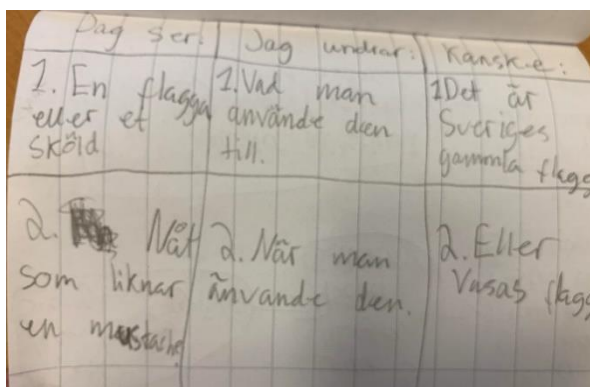 Jag ser: Jag undrar: Kanske:
1. En flagga
eller et
sköld
1. Vad man
använde den
till.
1 Det är
Sveriges
gammla flagg
2. Nåt
som liknar
en mustache
2. När man
använde den.
2. Eller
Vasas flagg